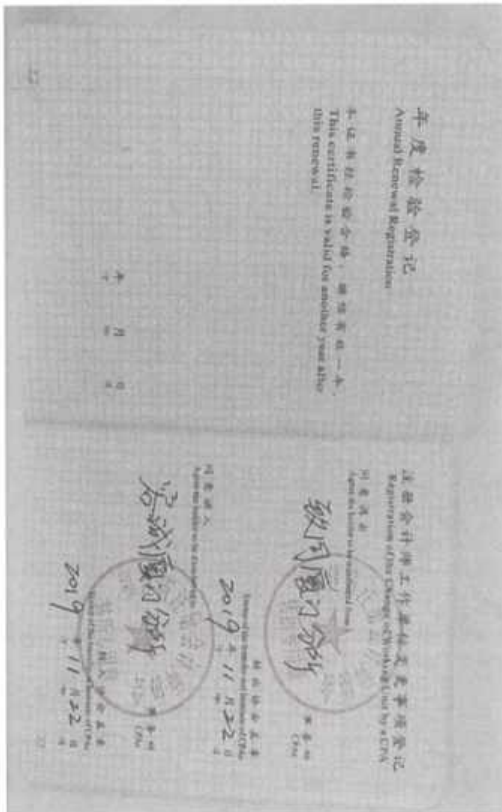 年度检验登记
Annual Renewal Registration
本证书经检验合格,继续有效一年。
This certificate is valid for another year after
this renewal.
年 月 日
注册会计师工作单位变更事项登记
Registration of the Change of Working Unit by a CPA
同意调出
Agree the holder to be transferred from
致同厦门分所
事务所
CPAs
转出协会盖章
Stamp of the transfer-out Institute of CPAs
2019 年 11 月 22 日
同意调入
Agree the holder to be transferred to
容诚厦门分所
事务所
CPAs
转入协会盖章
Stamp of the transfer-in Institute of CPAs
2019 年 11 月 22 日